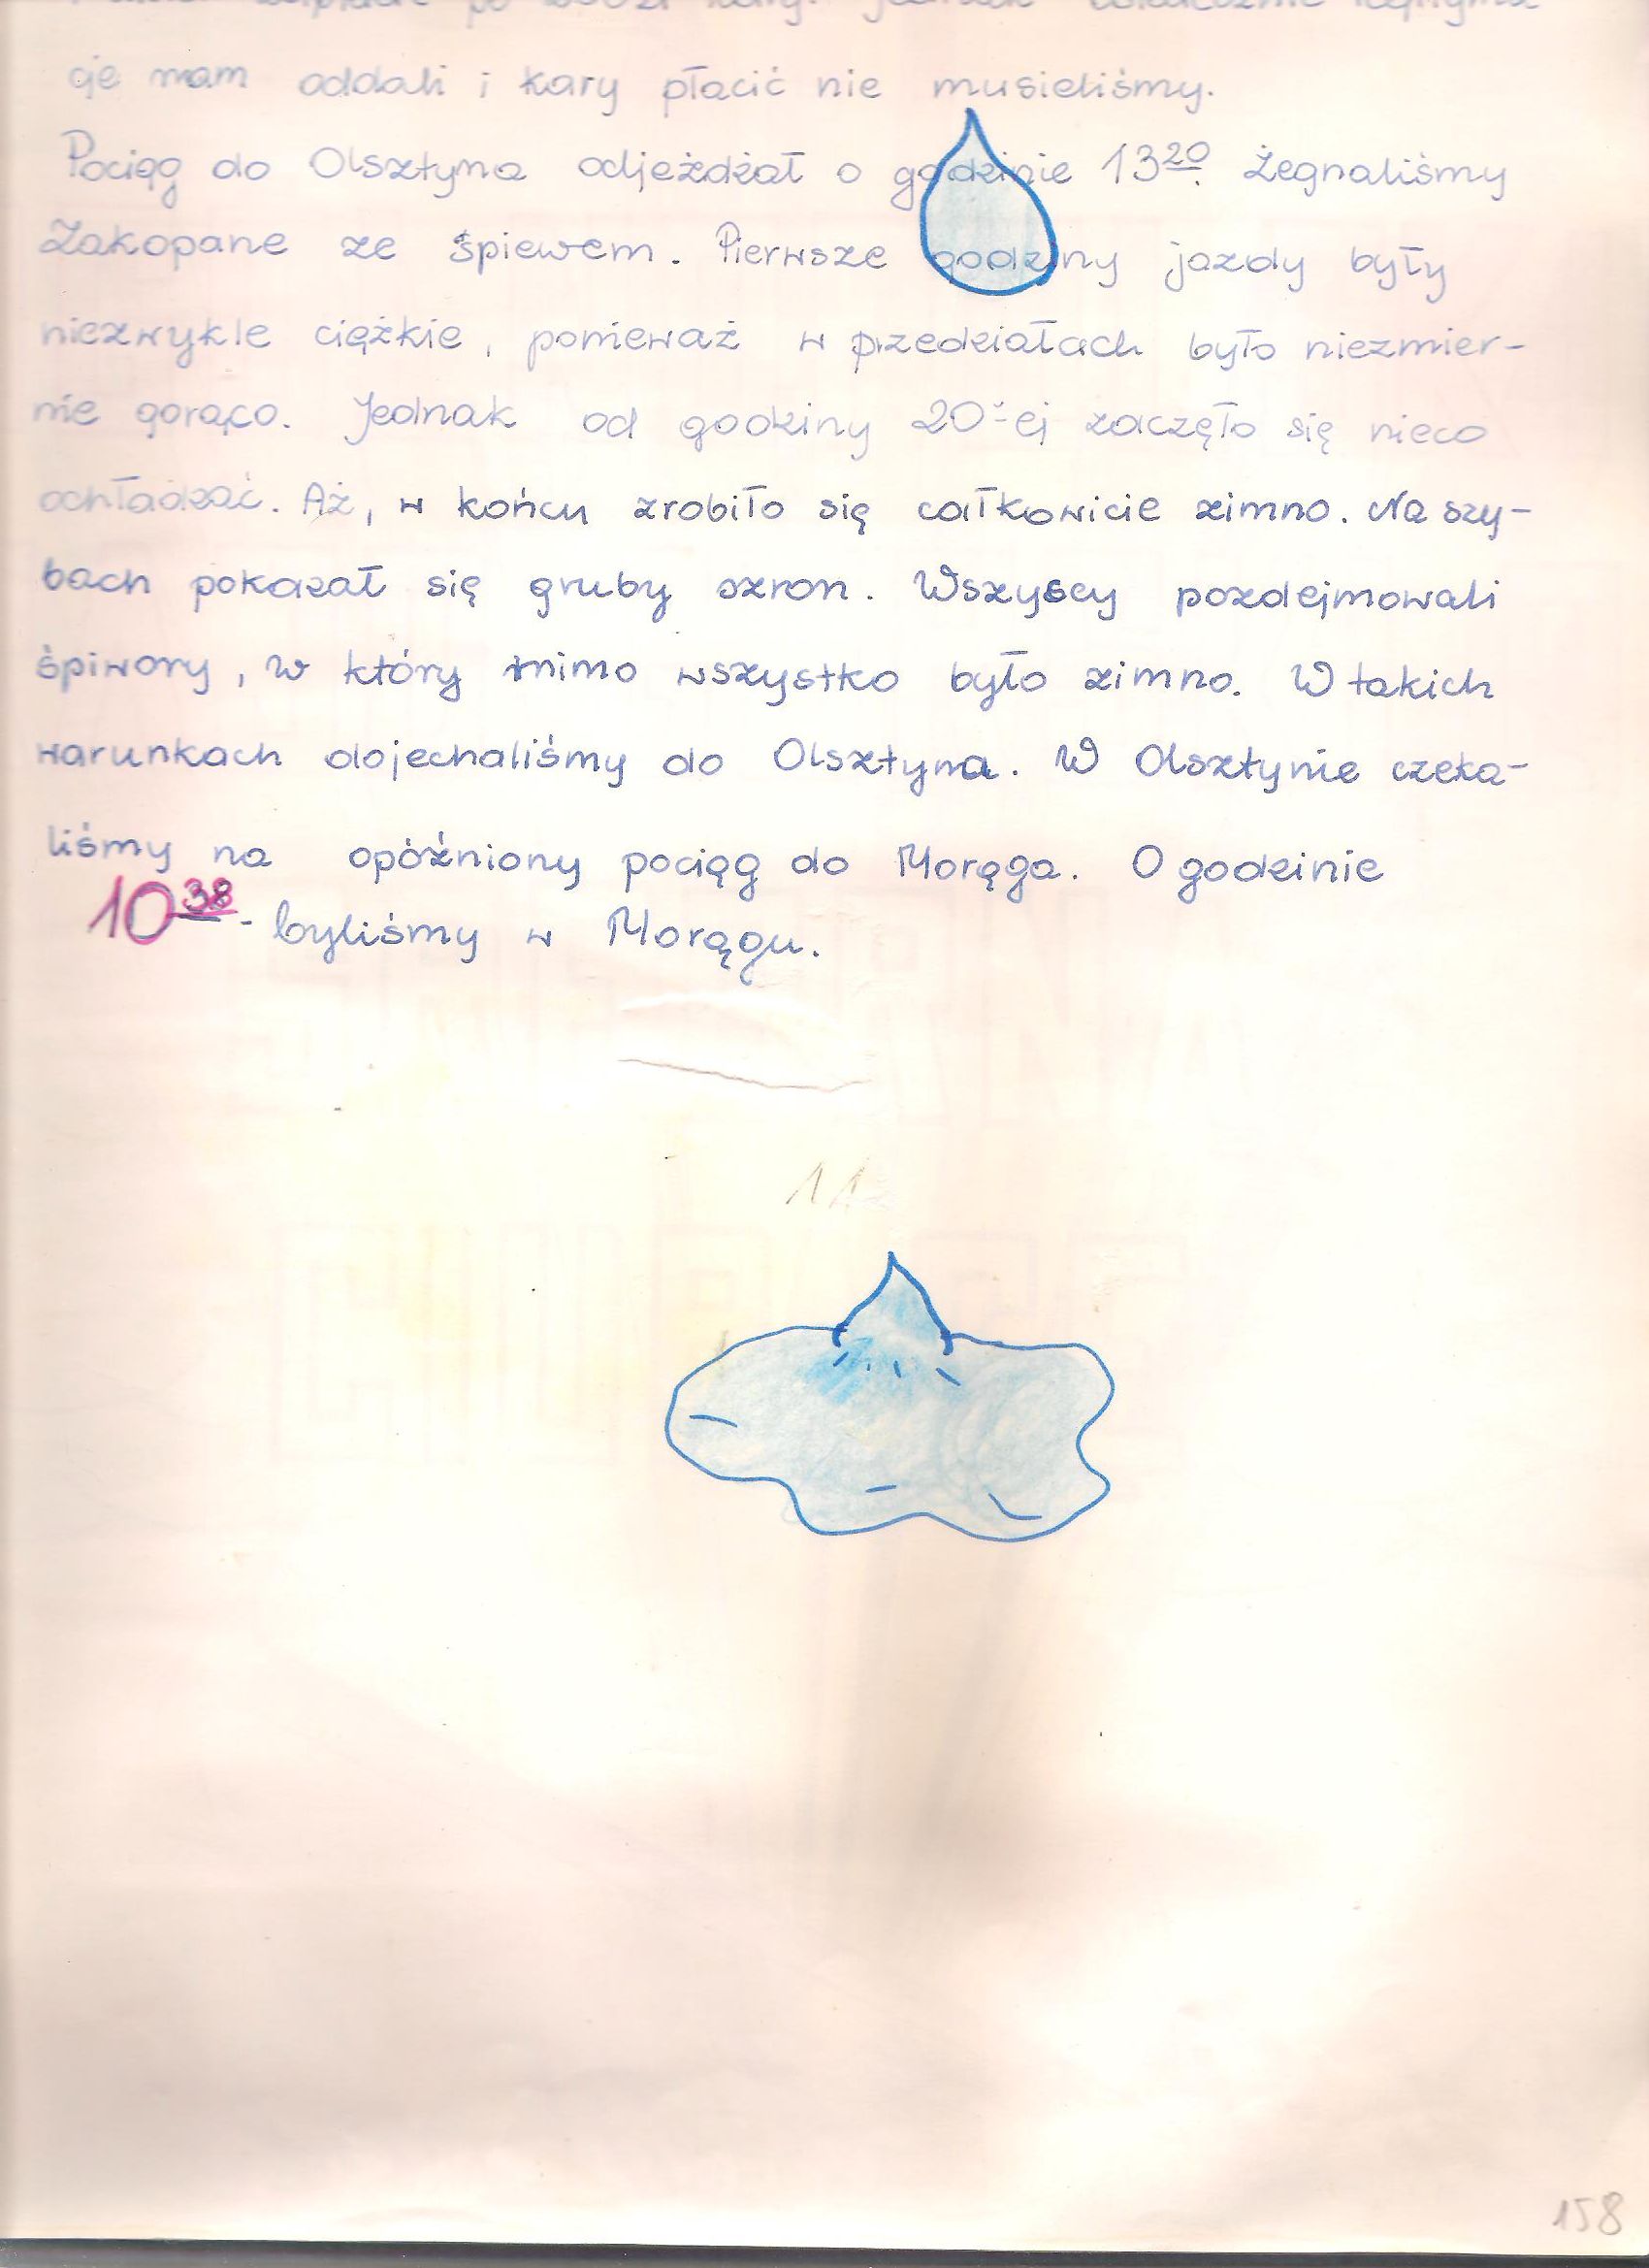 cje nam oddali i kary płacić nie musieliśmy.
Pociąg do Olsztyna odjeżdżał o godzinie 13²⁰. Żegnaliśmy
Zakopane ze śpiewem. Pierwsze godziny jazdy były
niezwykle ciężkie, ponieważ w przedziałach było niezmier-
nie gorąco. Jednak od godziny 20-ej zaczęło się nieco
ochładzać. Aż, w końcu zrobiło się całkowicie zimno. Na szy-
bach pokazał się gruby szron. Wszyscy pozdejmowali
śpiwory, w który mimo wszystko było zimno. W takich
warunkach dojechaliśmy do Olsztyna. W Olsztynie czeka-
liśmy na opóźniony pociąg do Morąga. O godzinie
10³⁸ - byliśmy w Morągu.
158